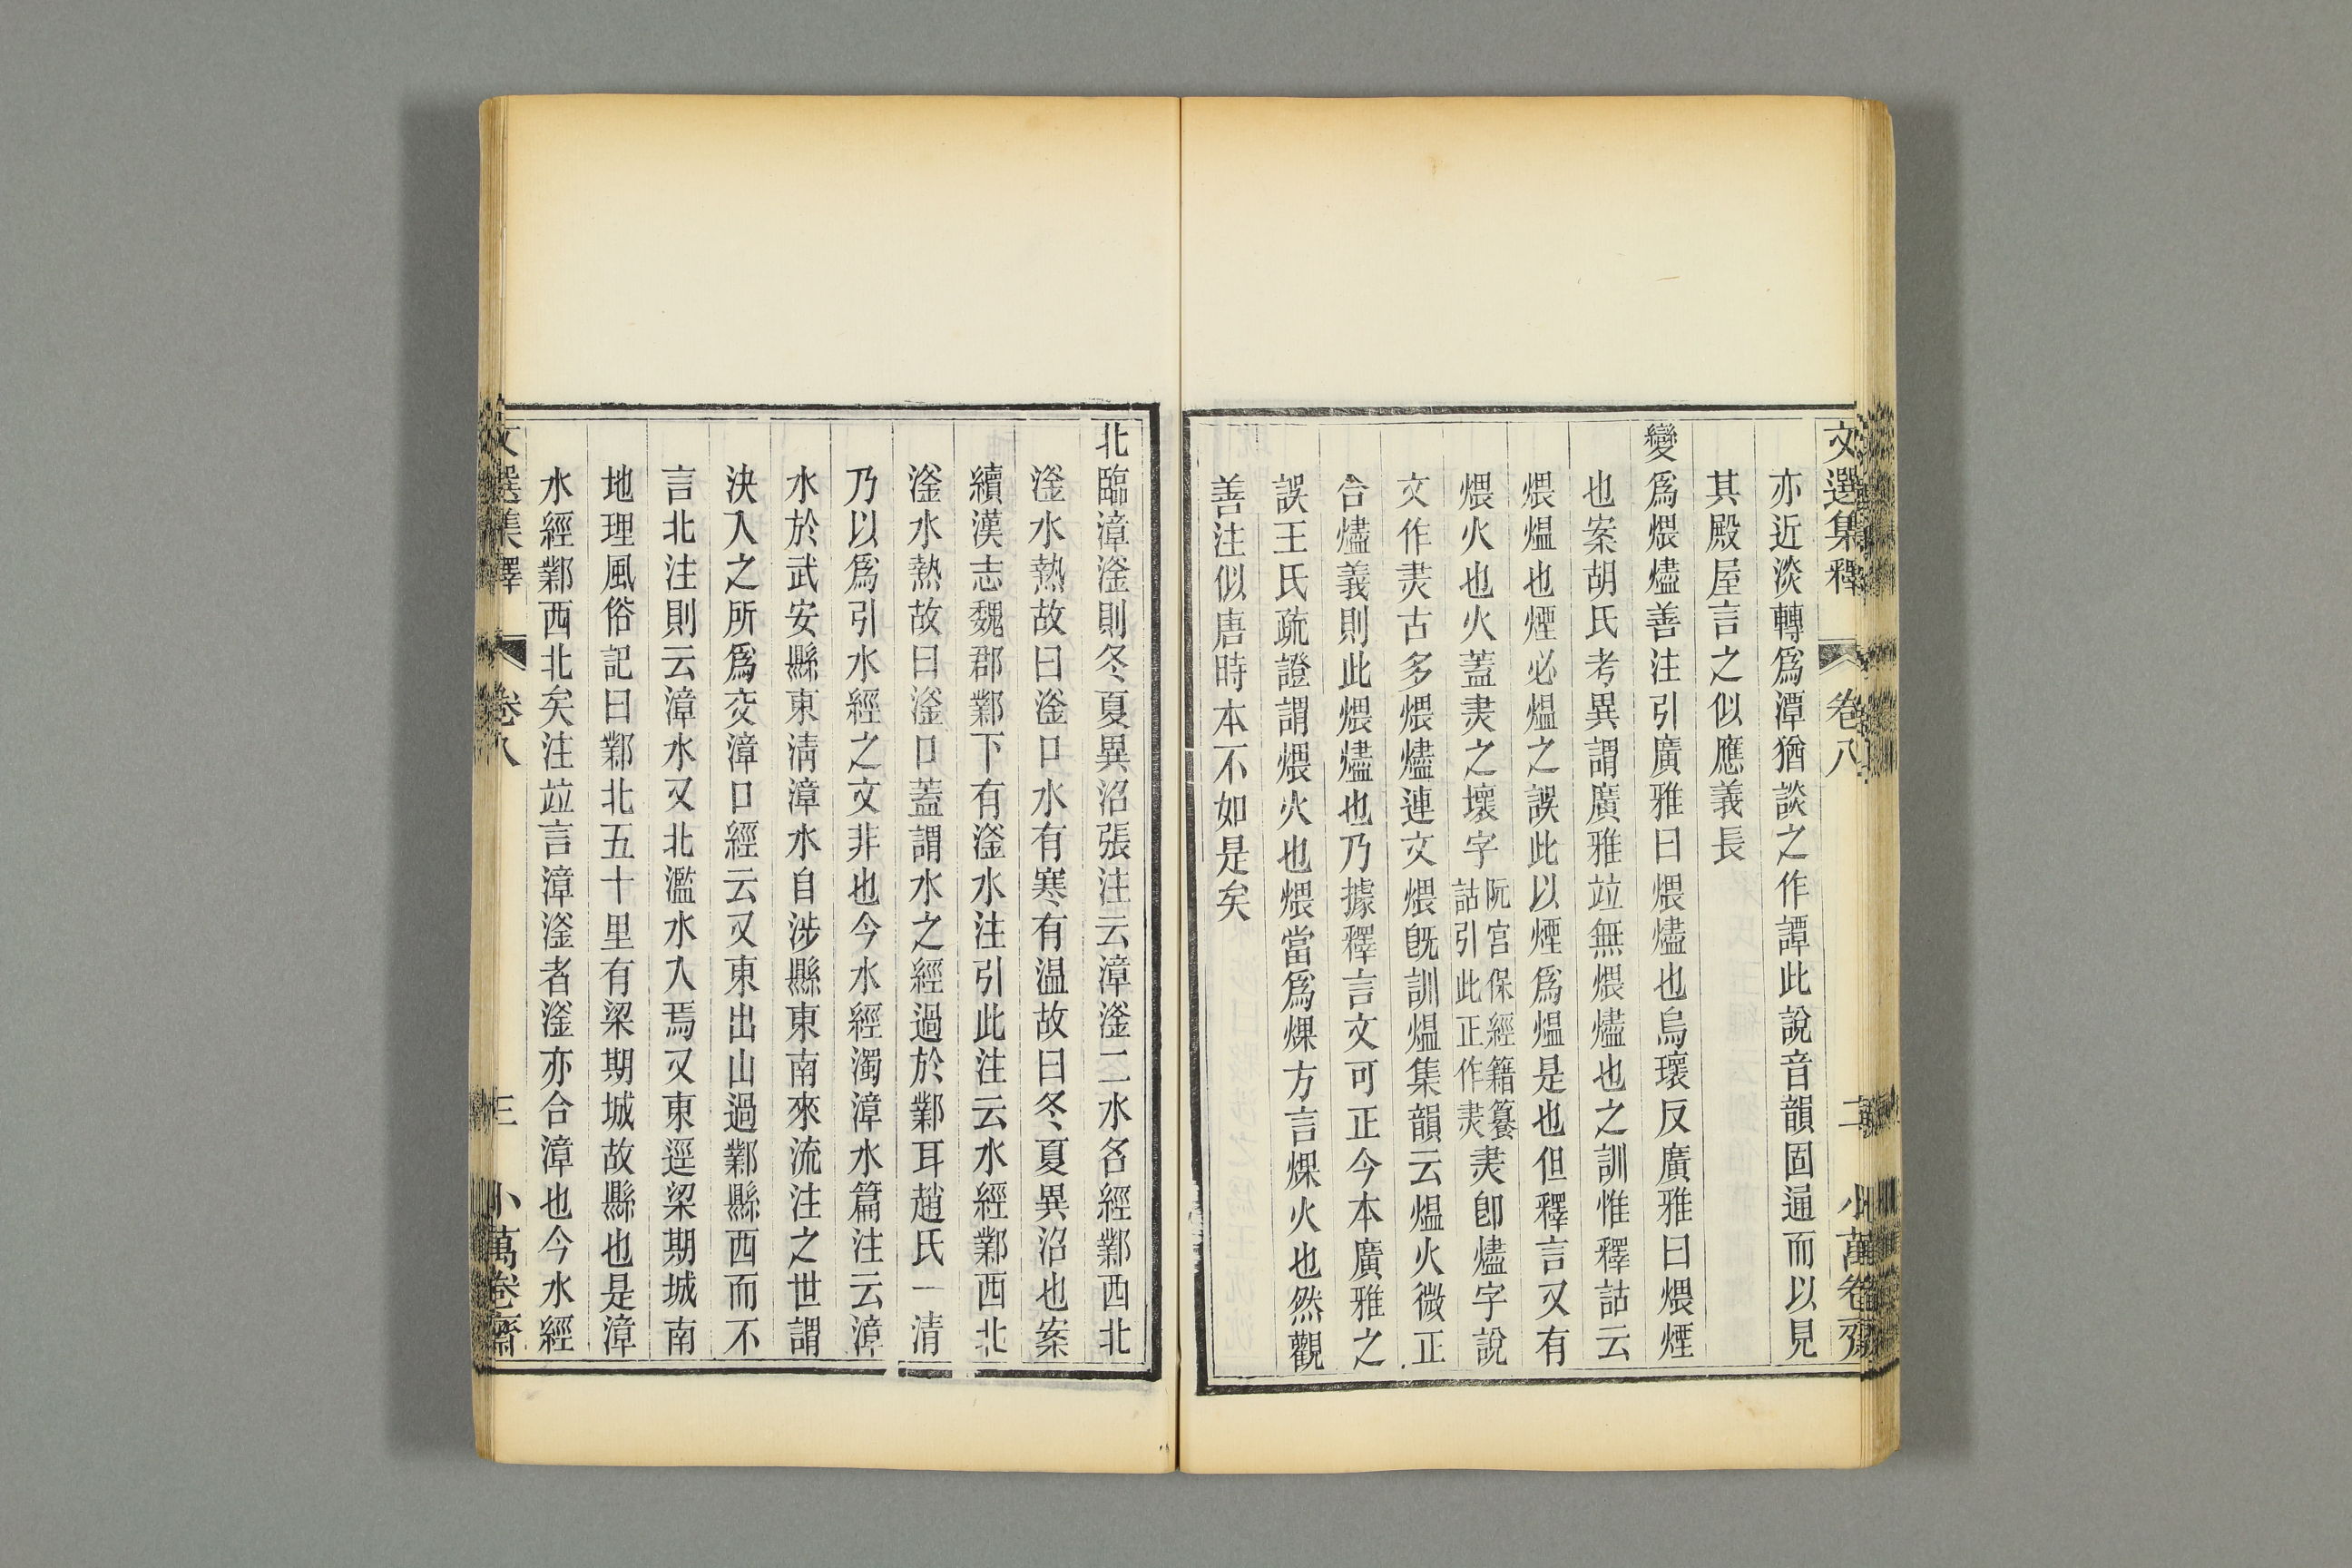 文選集釋 卷八 二 小萬卷齋
亦近淡轉爲潭猶談之作譚此說音韻固通而以見
其殿屋言之似應義長
變爲煨燼善注引廣雅曰煨燼也烏瓌反廣雅曰煨煙
也案胡氏考異謂廣雅竝無煨燼也之訓惟釋詁云
煨熅也煙必熅之誤此以煙爲熅是也但釋言又有
煨火也火蓋㶳之壞字阮宮保經籍籑詁引此正作㶳㶳卽燼字說
文作㶳古多煨燼連文煨旣訓熅集韻云熅火微正
合燼義則此煨燼也乃據釋言文可正今本廣雅之
誤王氏疏證謂煨火也煨當爲煤方言煤火也然觀
善注似唐時本不如是矣
北臨漳滏則冬夏異沼張注云漳滏二水名經鄴西北
滏水熱故曰滏口水有寒有温故曰冬夏異沼也案
續漢志魏郡鄴下有滏水注引此注云水經鄴西北
滏水熱故曰滏口蓋謂水之經過於鄴耳趙氏一清
乃以爲引水經之文非也今水經濁漳水篇注云漳
水於武安縣東淸漳水自涉縣東南來流注之世謂
決入之所爲交漳口經云又東出山過鄴縣西而不
言北注則云漳水又北濫水入焉又東逕梁期城南
地理風俗記曰鄴北五十里有梁期城故縣也是漳
水經鄴西北矣注竝言漳滏者滏亦合漳也今水經
文選集釋 卷八 三 小萬卷齋